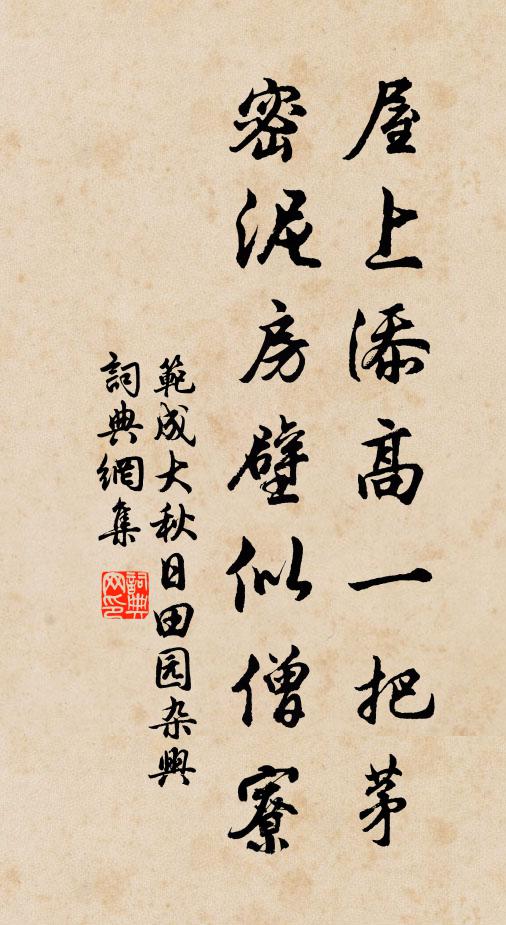 屋上添高一把茅
密泥房壁似僧寮
範成大秋日田园杂興
詞典網集
詞典网印